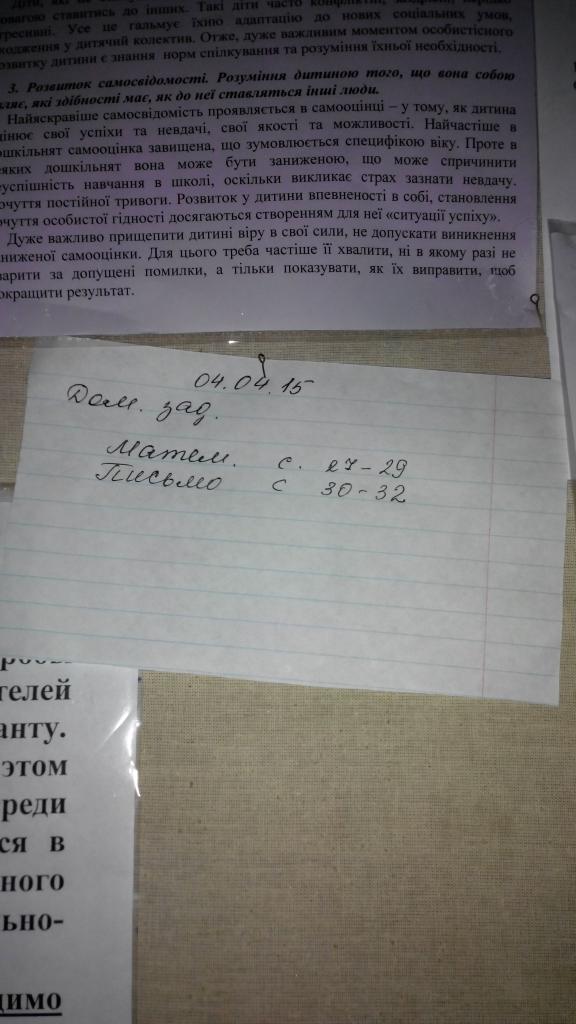 Діти, які не
повагою ставитись до інших. Такі діти часто конфліктні,
агресивні. Усе це гальмує їхню адаптацію до нових соціальних умов,
входження у дитячий колектив. Отже, дуже важливим моментом особистісного
розвитку дитини є знання норм спілкування та розуміння їхньої необхідності.
3. Розвиток самосвідомості. Розуміння дитиною того, що вона собою
вляє, які здібності має, як до неї ставляться інші люди.
Найяскравіше самосвідомість проявляється в самооцінці – у тому, як дитина
цінює свої успіхи та невдачі, свої якості та можливості. Найчастіше в
ошкільнят самооцінка завищена, що зумовлюється специфікою віку. Проте в
еяких дошкільнят вона може бути заниженою, що може спричинити
еуспішність навчання в школі, оскільки викликає страх зазнати невдачу.
очуття постійної тривоги. Розвиток у дитини впевненості в собі, становлення
очуття особистої гідності досягаються створенням для неї «ситуації успіху».
Дуже важливо прищепити дитині віру в свої сили, не допускати виникнення
аниженої самооцінки. Для цього треба частіше її хвалити, ні в якому разі не
варити за допущені помилки, а тільки показувати, як їх виправити, щоб
окращити результат.
04.04.15
Дом. зад.
Матем. с. 27-29
Письмо с 30-32
телей
анту.
этом
реди
ся в
ного
ьно-
димо